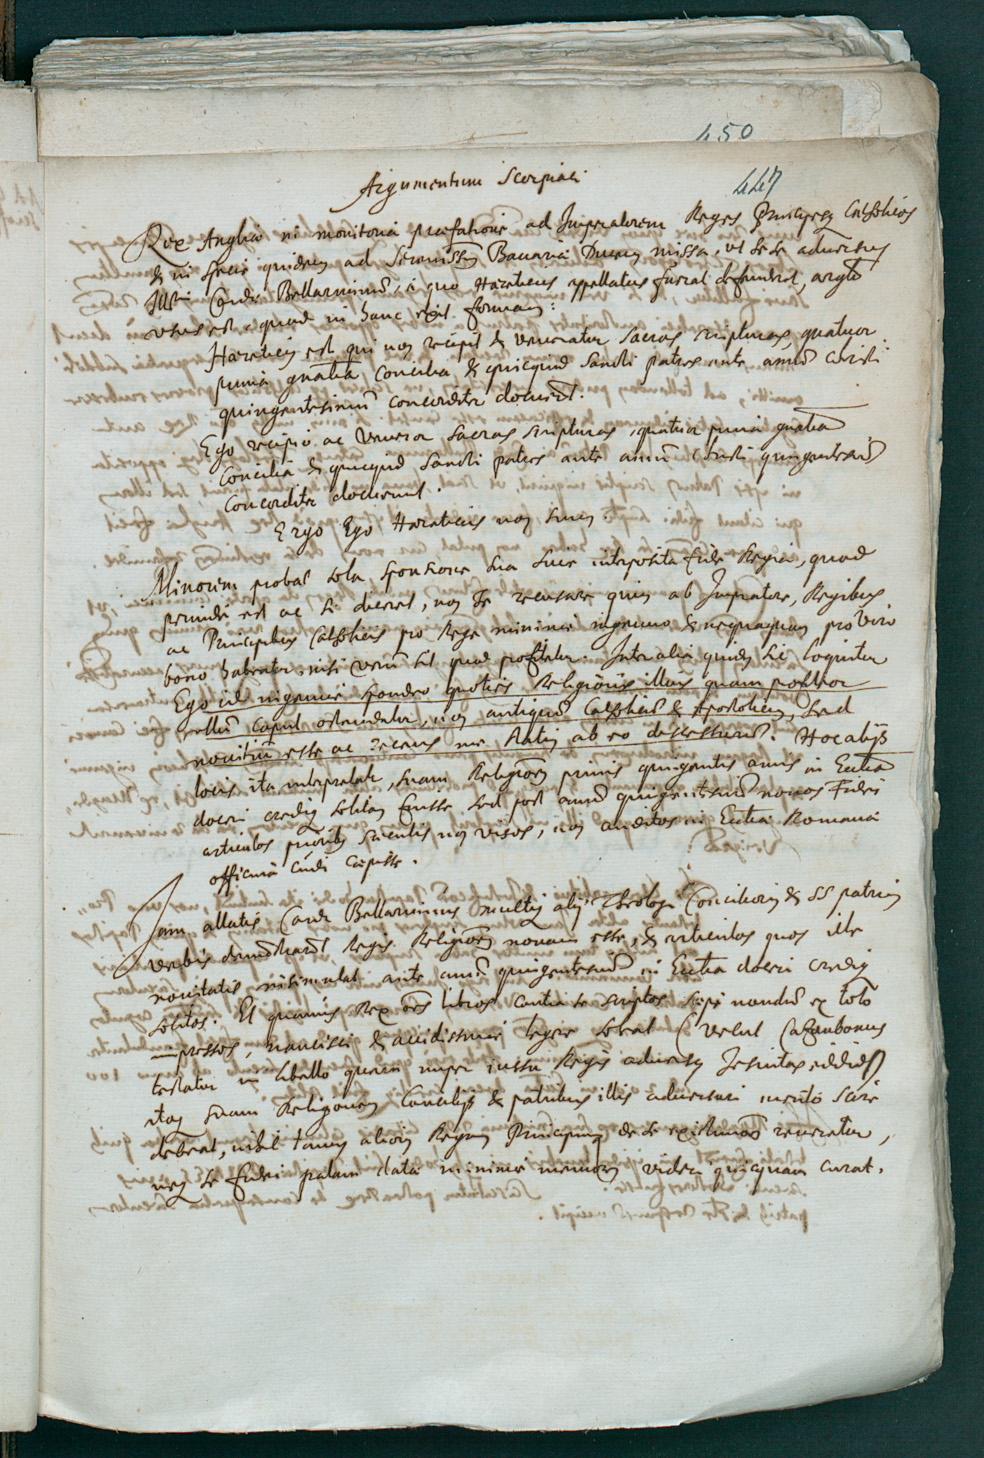 450
447
Argumentum Scorpiaci
Rex Angliæ in monitoria præfatione ad Imperatorem Reges Principesq Catholicos
& in specie quidem ad Serenissm Bavariæ Ducem missa, ut sese adversus
Illm Card. Bellarminum, a quo Hæreticus appellatus fuerat defenderet, argto
usus est, quod in hanc exit formam:
Hæreticus est qui non recipit & veneratur sacras scripturas, quatuor
prima gnalia Concilia & quicquid Sancti patres ante annu Christi
quingentesimu concorditer docuert.
Ego recipio ac veneror sacras scripturas, quatuor prima gnalia
Concilia & quicquid Sancti patres ante annu Christi quingentesimu
Concorditer docuerunt.
Ergo Ego Hæreticus non sum.
Minorem probat sola sponsione sua sive interposita fide Regia, quod
perinde est ac si diceret, non se recusare quin ab Imperatore, Regibus
ac Principibus Catholicis pro Rege minime ingenuo & nequaquam pro viro
bono habeatur, nisi verum sit quod profitetur. Inter alia quidem sic loquitur
Ego id ingenue spondeo quoties Religionis illius quam profiteor
ullum caput ostendetur, non antiquum Catholicu & Apostolicum, sed
novitiu esse ac recens me statim ab eo discessurum. Hoc alijs
locis ita interpretatur, suam Religionem primis quingentis annis in Ecclia
doceri credi solitam fuisse, sed post annu quingentesimu novos Fidei
articulos prioribus sæculis non visos, non auditos in Ecclia Romana
officina cudi cæpisse.
Jam allatis Card. Bellarminus multiq alij Theologi Conciliorum & SS patrum
verbis demonstrarunt Regis Religionem novam esse, & articulos quos ille
novitatis insimulat ante annu quingentesimu in Ecclia doceri credi
solitos. Et quamvis Rex oes libros contra se scriptos sæpe nondu ex toto
impressos, nancisci & avidissime legere soleat (velut Casaubonus
testatur in libello quem nuper iussu Regis adversus Jesuitas edidit)
itaq suam Religionem Concilijs & patribus illis adversari merito scire
debeat, nihil tamen aliorum Regum Principumq de se existimationem reveretur,
neq se fidei palam datæ minime memorem videri quicquam curat.